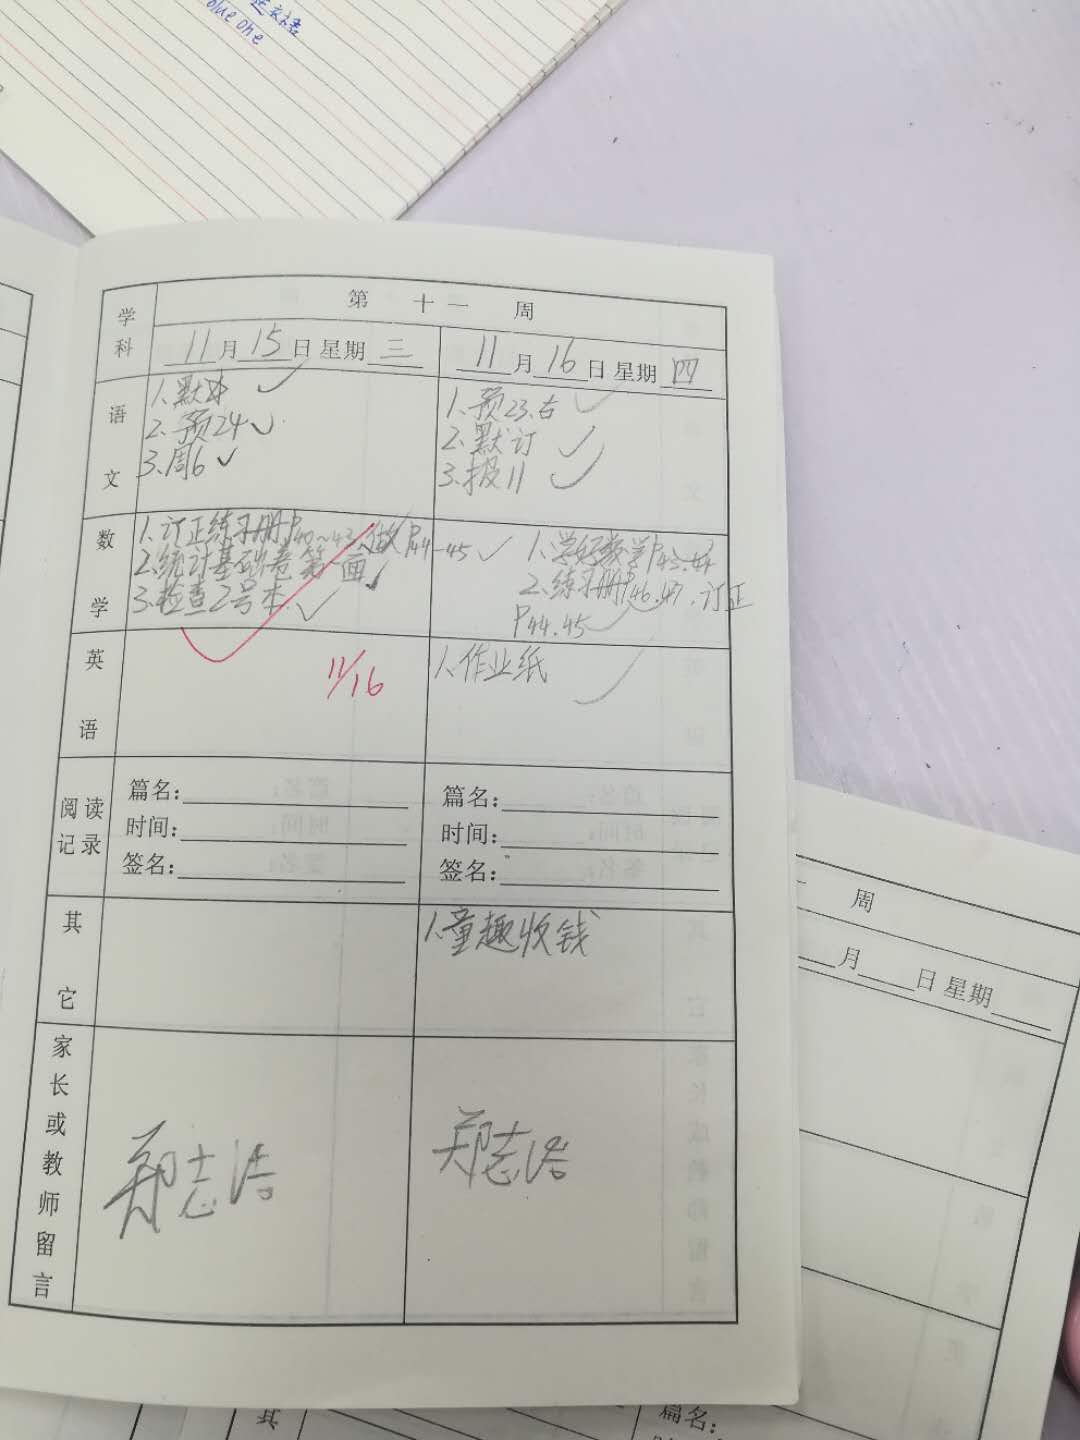 blue one
学科
第 十一 周
11月15日星期三
11月16日星期四
语文
1.默本
2.预24
3.周6
1.预23.古
2.默订
3.报11
数学
1.订正练习册P40~43、做P44-45
2.统计基础卷第一面
3.检查2号本
1.学好数学P43.44
2.练习册P46.47.订正
P44.45
英语
11/16
1.作业纸
阅读记录
篇名:
时间:
签名:
篇名:
时间:
签名:
其它
1.童趣收钱
家长或教师留言
郑志浩
郑志浩
周
月 日 星期
其
篇名: